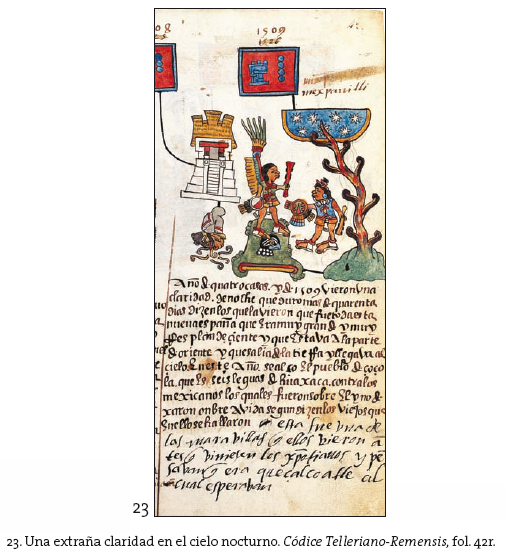 1509
mexpanitli
Año de quatro casas. y de 1509 vieron una
claridad. de noche que duro mas de quarenta
dias dizen los que la vieron que fue toda esta
nueva españa que era muy grande y muy
resplandeciente y que estava a la parte
de oriente y que salia de la tierra y llegava al
cielo. en este Año. se alço el pueblo de çoço
la. que es seis leguas de huaxaca. contra los
mexicanos los quales fueron sobre el y no de
xaron onbre a vida segun dizen los viejos que
en ello se hallaron esta fue una de
las maravillas que ellos vieron an
tes que viniesen los xpianos y pe
savan que era queçalcoatle al
cual esperavan
23
23. Una extraña claridad en el cielo nocturno. Códice Telleriano-Remensis, fol. 42r.